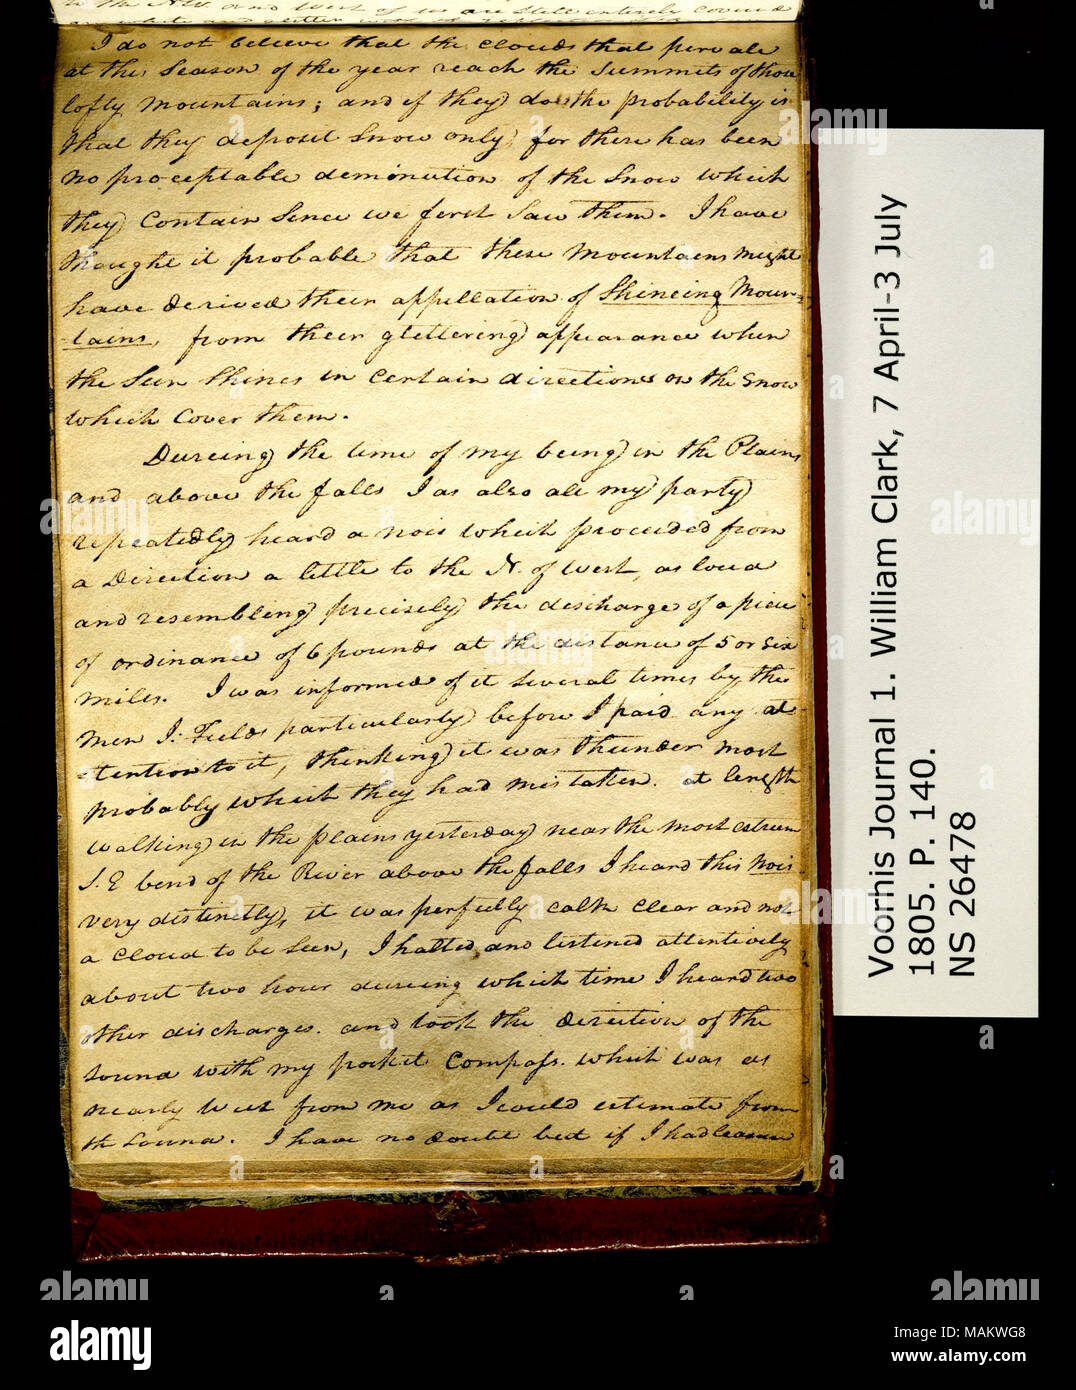 to the N W. and West of us are Still entirely covered
I do not believe that the clouds that pervale
at this Season of the year reach the Summits of those
lofty mountains; and if they do the probability is
that they deposit Snow only, for there has been
no proceptable deminution of the Snow which
they Contain Sence we first Saw them. I have
thought it probable that these mountains might
have derived their appellation of Shineing Moun-
-tains, from their glittering appearance when
the Sun Shines in certain directions on the Snow
which Cover them.
Dureing the time of my being in the Plains
and above the falls I as also all my party
repeatedly heard a nois which proceeded from
a Direction a little to the N. of West, as loud
and resembling precisely the discharge of a piece
of ordinance of 6 pounds at the distance of 5 or Six
miles. I was informed of it Several times by the
men J: Fields particularly before I paid any at-
-tention to it, thinking it was thunder most
probably which they had mistaken. at length
walking in the plains yesterday near the most extreem
S. E bend of the River above the falls I heard this Nois
very distinctly, it was perfectly calm clear and not
a Cloud to be Seen, I halted and listened attentively
about two hour dureing which time I heard two
other discharges. and took the direction of the
Sound with my pocket Compass. which was as
nearly West from me as I could estimate from
th Sound. I have no doubt but if I had leasure
Voorhis Journal 1. William Clark, 7 April-3 July
1805. P. 140.
NS 26478
alamy
Image ID: MAKWG8
www.alamy.com